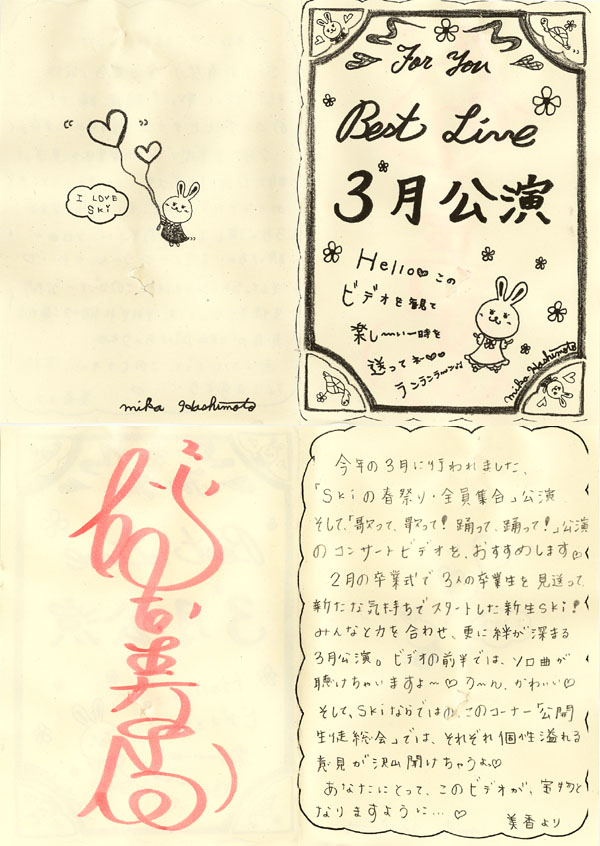 I LOVE
Ski
mika Hashimoto
For You
Best Live
3月公演
Hello♡この
ビデオを観て
楽し〜い一時を
送ってネ♡♡
ランランラ〜ン♪
mika Hashimoto
今年の3月に行われました、
「Skiの春祭り・全員集合」公演
そして、「歌って、歌って!踊って、踊って!」公演
のコンサートビデオを、おすすめします♡
2月の卒業式で3人の卒業生を見送って、
新たな気持ちでスタートした新生Ski!
みんなと力を合わせ、更に絆が深まる
3月公演。ビデオの前半では、ソロ曲が
聴けちゃいますよ〜♡う〜ん、かわいい♡
そして、Skiならではの、このコーナー「公開
生徒総会」では、それぞれ個性溢れる
意見が沢山聞けちゃうよ♡
あなたにとって、このビデオが、宝物と
なりますように…♡
美香より